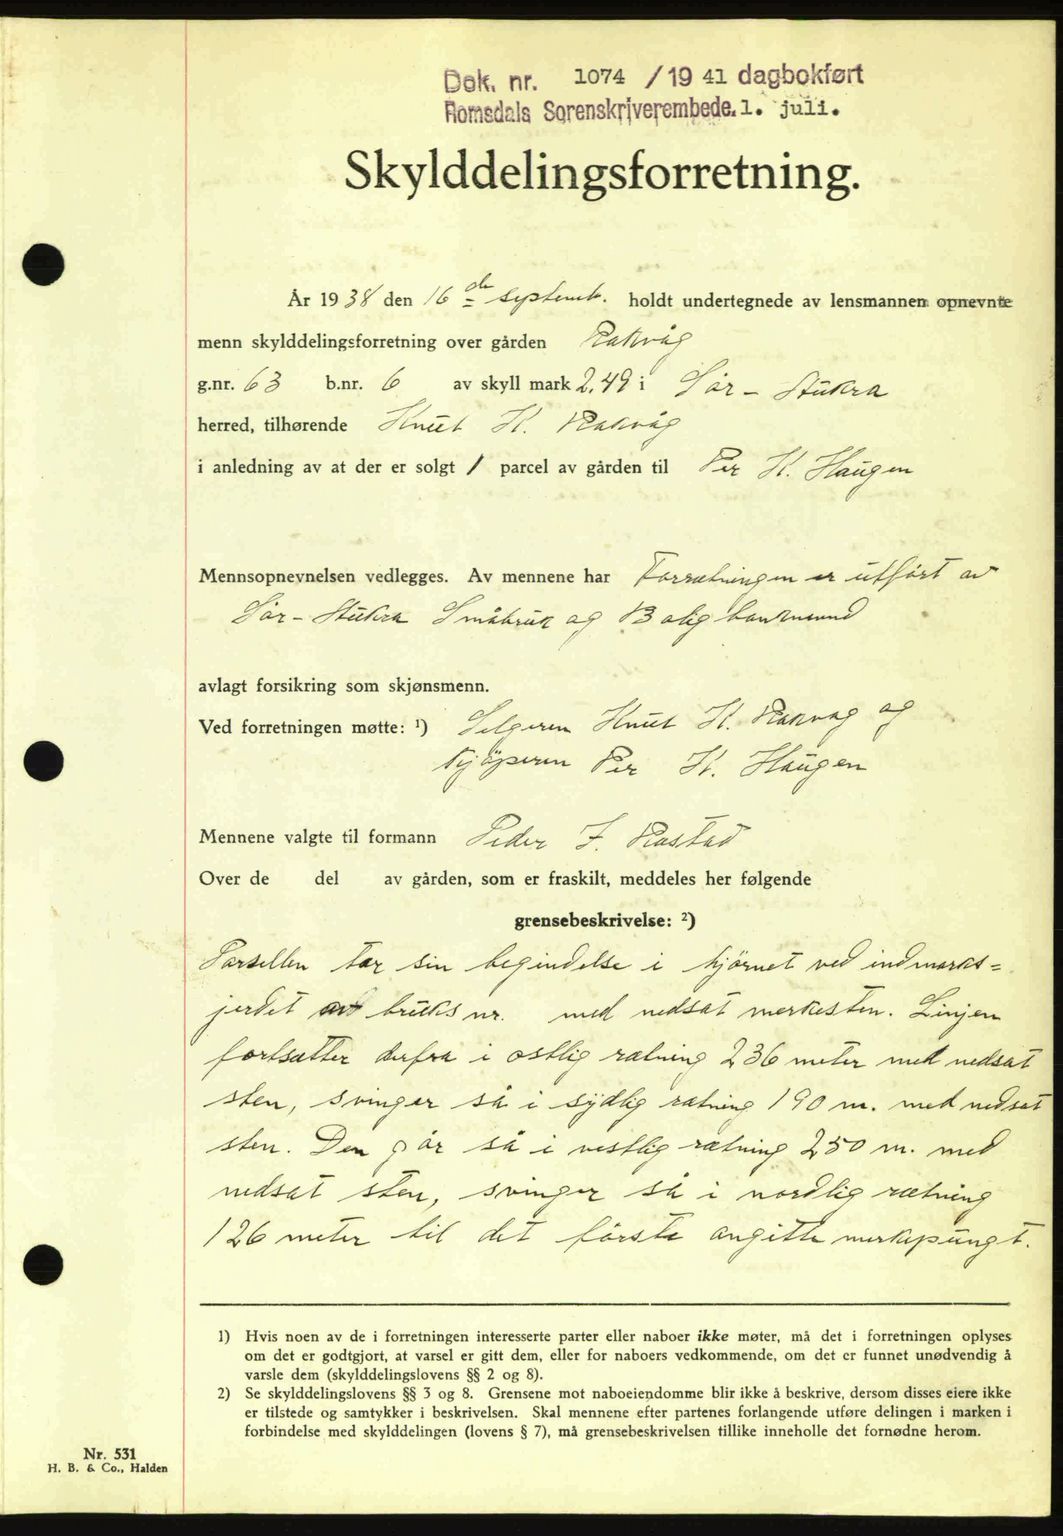 Dok. nr. 1074 /19 41 dagbokført
Romsdals Sorenskriverembede. 1. juli.
Skylddelingsforretning.
År 1938 den 16de septemb. holdt undertegnede av lensmannen opnevnte
menn skylddelingsforretning over gården Rakvåg
g.nr. 63 b.nr. 6 av skyll mark 2.49 i Sør-Aukra
herred, tilhørende Knut K. Rakvåg
i anledning av at der er solgt 1 parcel av gården til Per K. Haugen
Mennsopnevnelsen vedlegges. Av mennene har Forrætningen er utført av
Sør-Aukra Småbruk og Boligbanknemnd
avlagt forsikring som skjønsmenn.
Ved forretningen møtte: ¹) Selgeren Knut K. Rakvåg og
kjöperen Per K. Haugen
Mennene valgte til formann Peder J. Rostad
Over de del av gården, som er fraskilt, meddeles her følgende
grensebeskrivelse: ²)
Parsellen tar sin begindelse i hjörnet ved indmarks=
jerdet bruks nr. med nedsat merkesten. Linjen
fortsætter derfra i ostlig rætning 236 meter med nedsat
sten, svinger så i sydlig rætning 190 m. med nedsat
sten. Den går så i vestlig rætning 250 m. med
nedsat sten, svinger så i nordlig rætning
126 meter til det förste angitte merkepungt.
1) Hvis noen av de i forretningen interesserte parter eller naboer ikke møter, må det i forretningen oplyses
om det er godtgjort, at varsel er gitt dem, eller for naboers vedkommende, om det er funnet unødvendig å
varsle dem (skylddelingslovens §§ 2 og 8).
2) Se skylddelingslovens §§ 3 og 8. Grensene mot naboeiendomme blir ikke å beskrive, dersom disses eiere ikke
er tilstede og samtykker i beskrivelsen. Skal mennene efter partenes forlangende utføre delingen i marken i
forbindelse med skylddelingen (lovens § 7), må grensebeskrivelsen tillike inneholle det fornødne herom.
Nr. 531
H. B. & Co., Halden